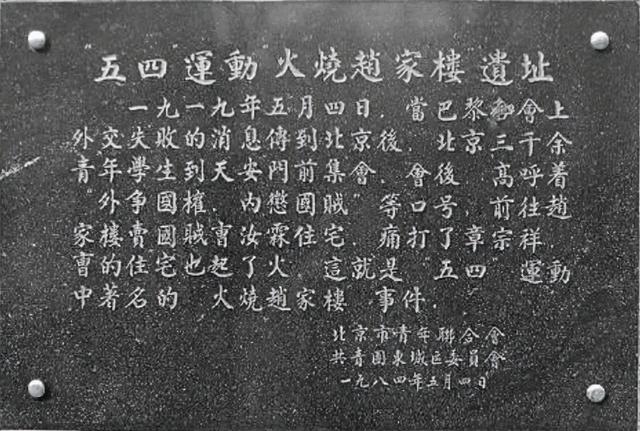 "五四"運動"火燒趙家樓"遺址
一九一九年五月四日，當巴黎和會上
外交失敗的消息傳到北京後，北京三千余
青年學生到天安門前集會，會後高呼着
"外争國權，内懲國賊"等口号，前往趙
家樓賣國賊曹汝霖住宅，痛打了章宗祥，
曹的住宅也起了火。這就是"五四"運動
中著名的"火燒趙家樓"事件。
北京市青年聯合會
共青團東城區委員會
一九八四年五月四日